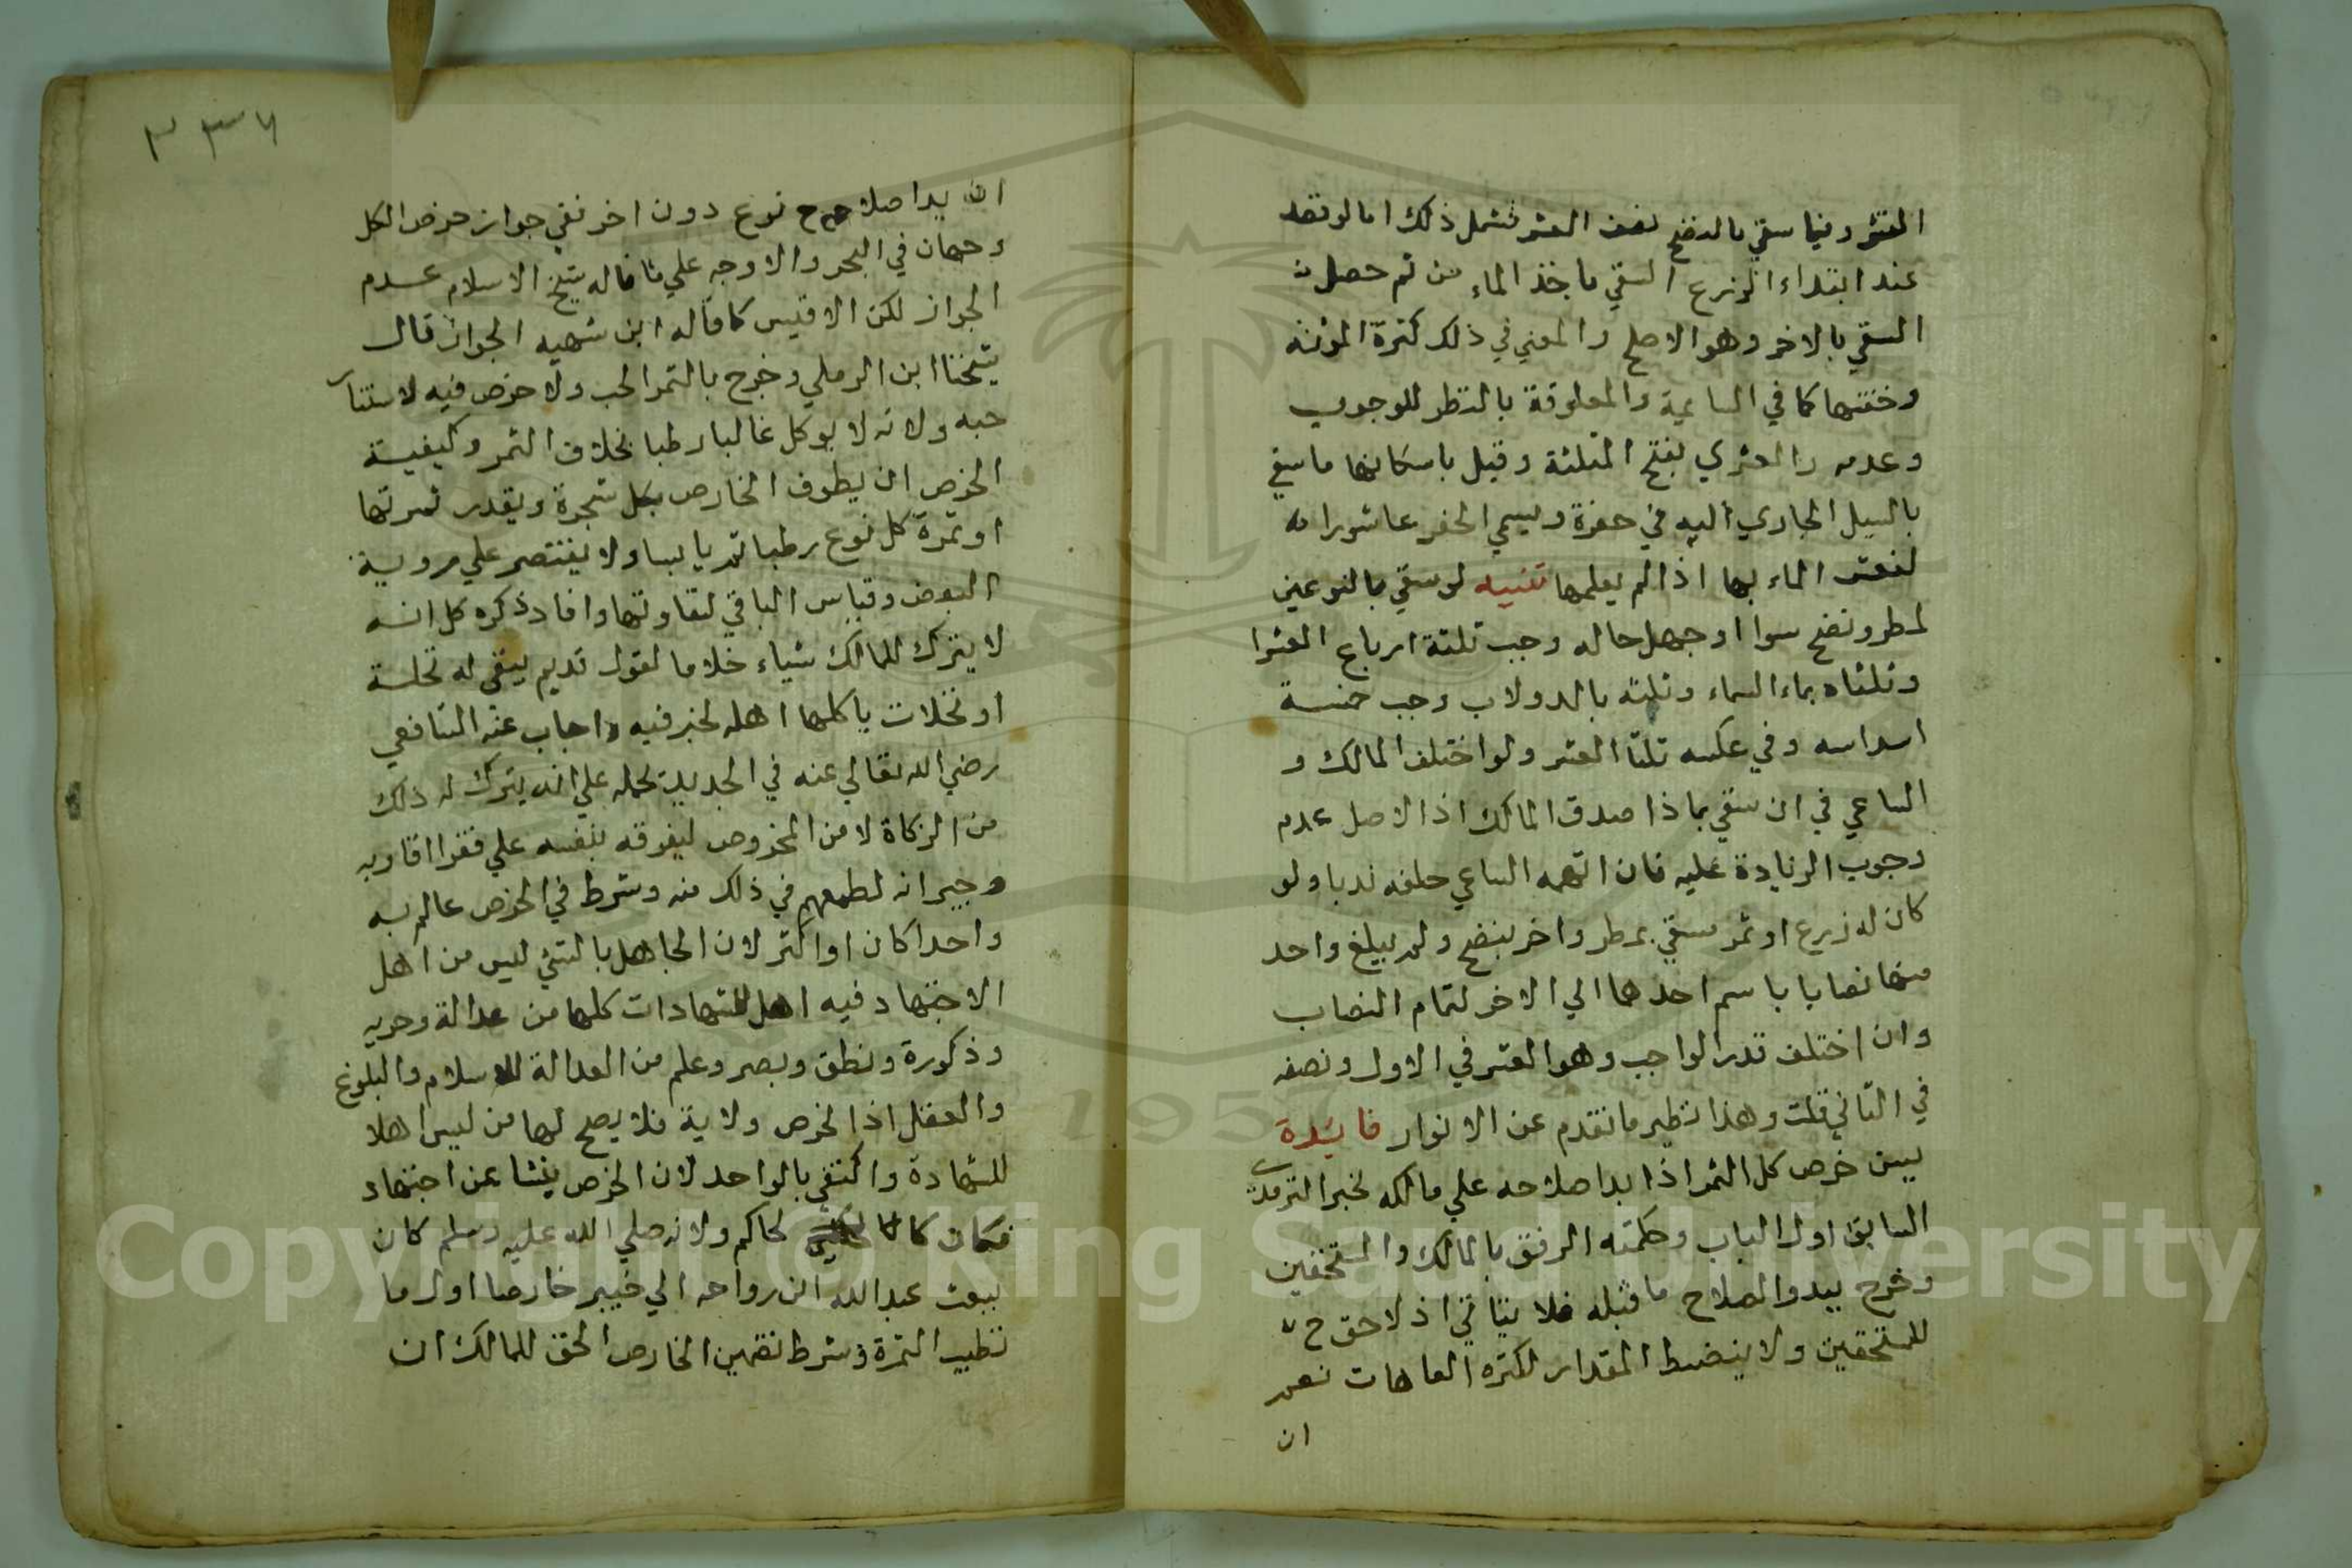 العشر وفيما سقي بالنضح نصف العشر فشمل ذلك اما لو قصد
عند ابتداء الزرع السقي باخذ الماء من ثم حصل
السقي بالاخر وهو الاصلح والمعني في ذلك كثرة المؤنه
وخفتها كما في السايمة والمعلوفة بالنظر للوجوب
وعدمه والعثري بفتح المثلثة وقيل باسكانها ما سقي
بالسيل الجاري اليه في حفرة ويسمي الحفر عاثورا
لتعثر الماء بها اذا لم يعلمها تنبيه لو سقي بالنوعين
لمطر ونضح سوا او جهل حاله وجب ثلثة ارباع العشرا
وثلثاه بماء السماء وثلثه بالدولاب وجب خمسة
اسداسه وفي عكسه ثلثا العشر ولو اختلف المالك و
الساعي في ان سقي بماذا صدق المالك اذ الاصل عدم
وجوب الزيادة عليه فان اتهمه الساعي حلفه ندبا ولو
كان له زرع او ثمر سقي بمطر واخر بنضح ولم يبلغ واحد
منهما نصابا باسم احدهما الي الاخر لتمام النصاب
وان اختلف قدر الواجب وهو العشر في الاول ونصفه
في الثاني قلت وهذا نظير ما تقدم عن الانوار فايدة
يسن خرص كل الثمر اذا بدا صلاحه علي مالكه لخبر الترمذي
السابق اول الباب وحكمته الرفق بالمالك والمستحقين
وخرج ببدو الصلاح ما قبله فلا يتاتي اذ لا حق ح
للمستحقين ولا ينضبط المقدار لكثره العاهات نعم
ان
٢٣٧
ان بدا صلاح نوع دون اخر نفي جواز خرص الكل
وجهان في البحر والاوجه علي ما قاله شيخ الاسلام عدم
الجواز لكن الاقيس كما قاله ابن شهبه الجواز قال
شيخنا ابن الرملي وخرج بالثمر الحب ولا خرص فيه لاستتار
حبه ولانه لا يوكل غالبا رطبا بخلاف الثمر وكيفية
الخرص ان يطوف الخارص بكل شجرة ويقدر ثمرتها
او ثمرة كل نوع رطبا ثم يابسا ولا يقتصر علي روية
البعض وقياس الباقي لتفاوتها وافاد ذكره كل انه
لا يترك للمالك شياء خلاما لقول قديم يبقي له نخلة
او نخلات ياكلها اهله لخبر فيه واجاب عنه الشافعي
رضي الله تعالي عنه في الجديد بحمله علي انه يترك له ذلك
من الزكاة لا من المخروص ليفرقه بنفسه علي فقرا اقاربه
وجيرانه لطمعهم في ذلك منه وشرط في الخرص عالم به
واحدا كان او اكثر لان الجاهل بالشئ ليس من اهل
الاجتهاد فيه اهل للشهادات كلها من عدالة وحريه
وذكورة ونطق وبصر وعلم من العدالة الاسلام والبلوغ
والعقل اذ الخرص ولاية فلا يصح لها من ليس اهلا
للشهادة واكتفي بالواحد لان الخرص ينشا عن اجتهاد
فكان كالحاكم ولانه صلي الله عليه وسلم كان
يبعث عبدالله ابن رواحه الي خيبر خارصا اول ما
تطيب الثمرة وشرط تضمين الخارص الحق للمالك ان
Copyright © King Saud University
1957